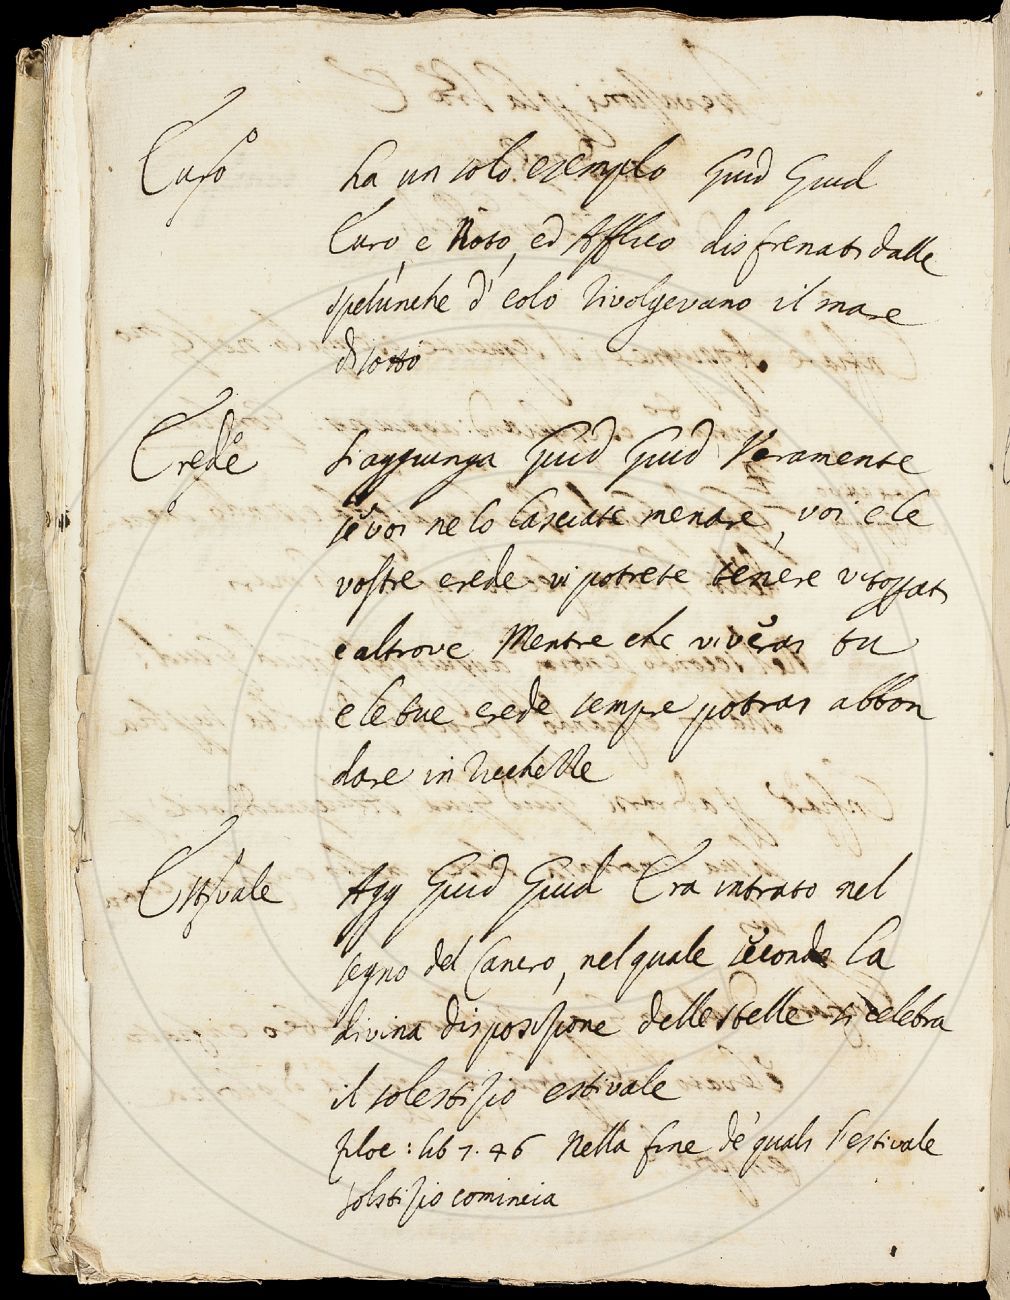 Euro
ha un solo esempio Guid Giud
Euro, e Noto, ed Affrico disfrenati dalle
spelunche d'Eolo rivolgevano il mare
di sotto
Erede
si aggiunga Guid Giud Veramente
se voi ne lo lasciate menare, voi e le
vostre erede vi potrete tenere
e altrove Mentre che viverai tu
e le tue erede sempre potrai abbon
dare in ricchezze
Estivale
Agg Guid Giud Era intrato nel
segno del Cancro, nel quale secondo la
divina disposizione delle stelle si celebra
il solestizio estivale
lib 1. 46 Nella fine de' quali l'estivale
solstizio comincia